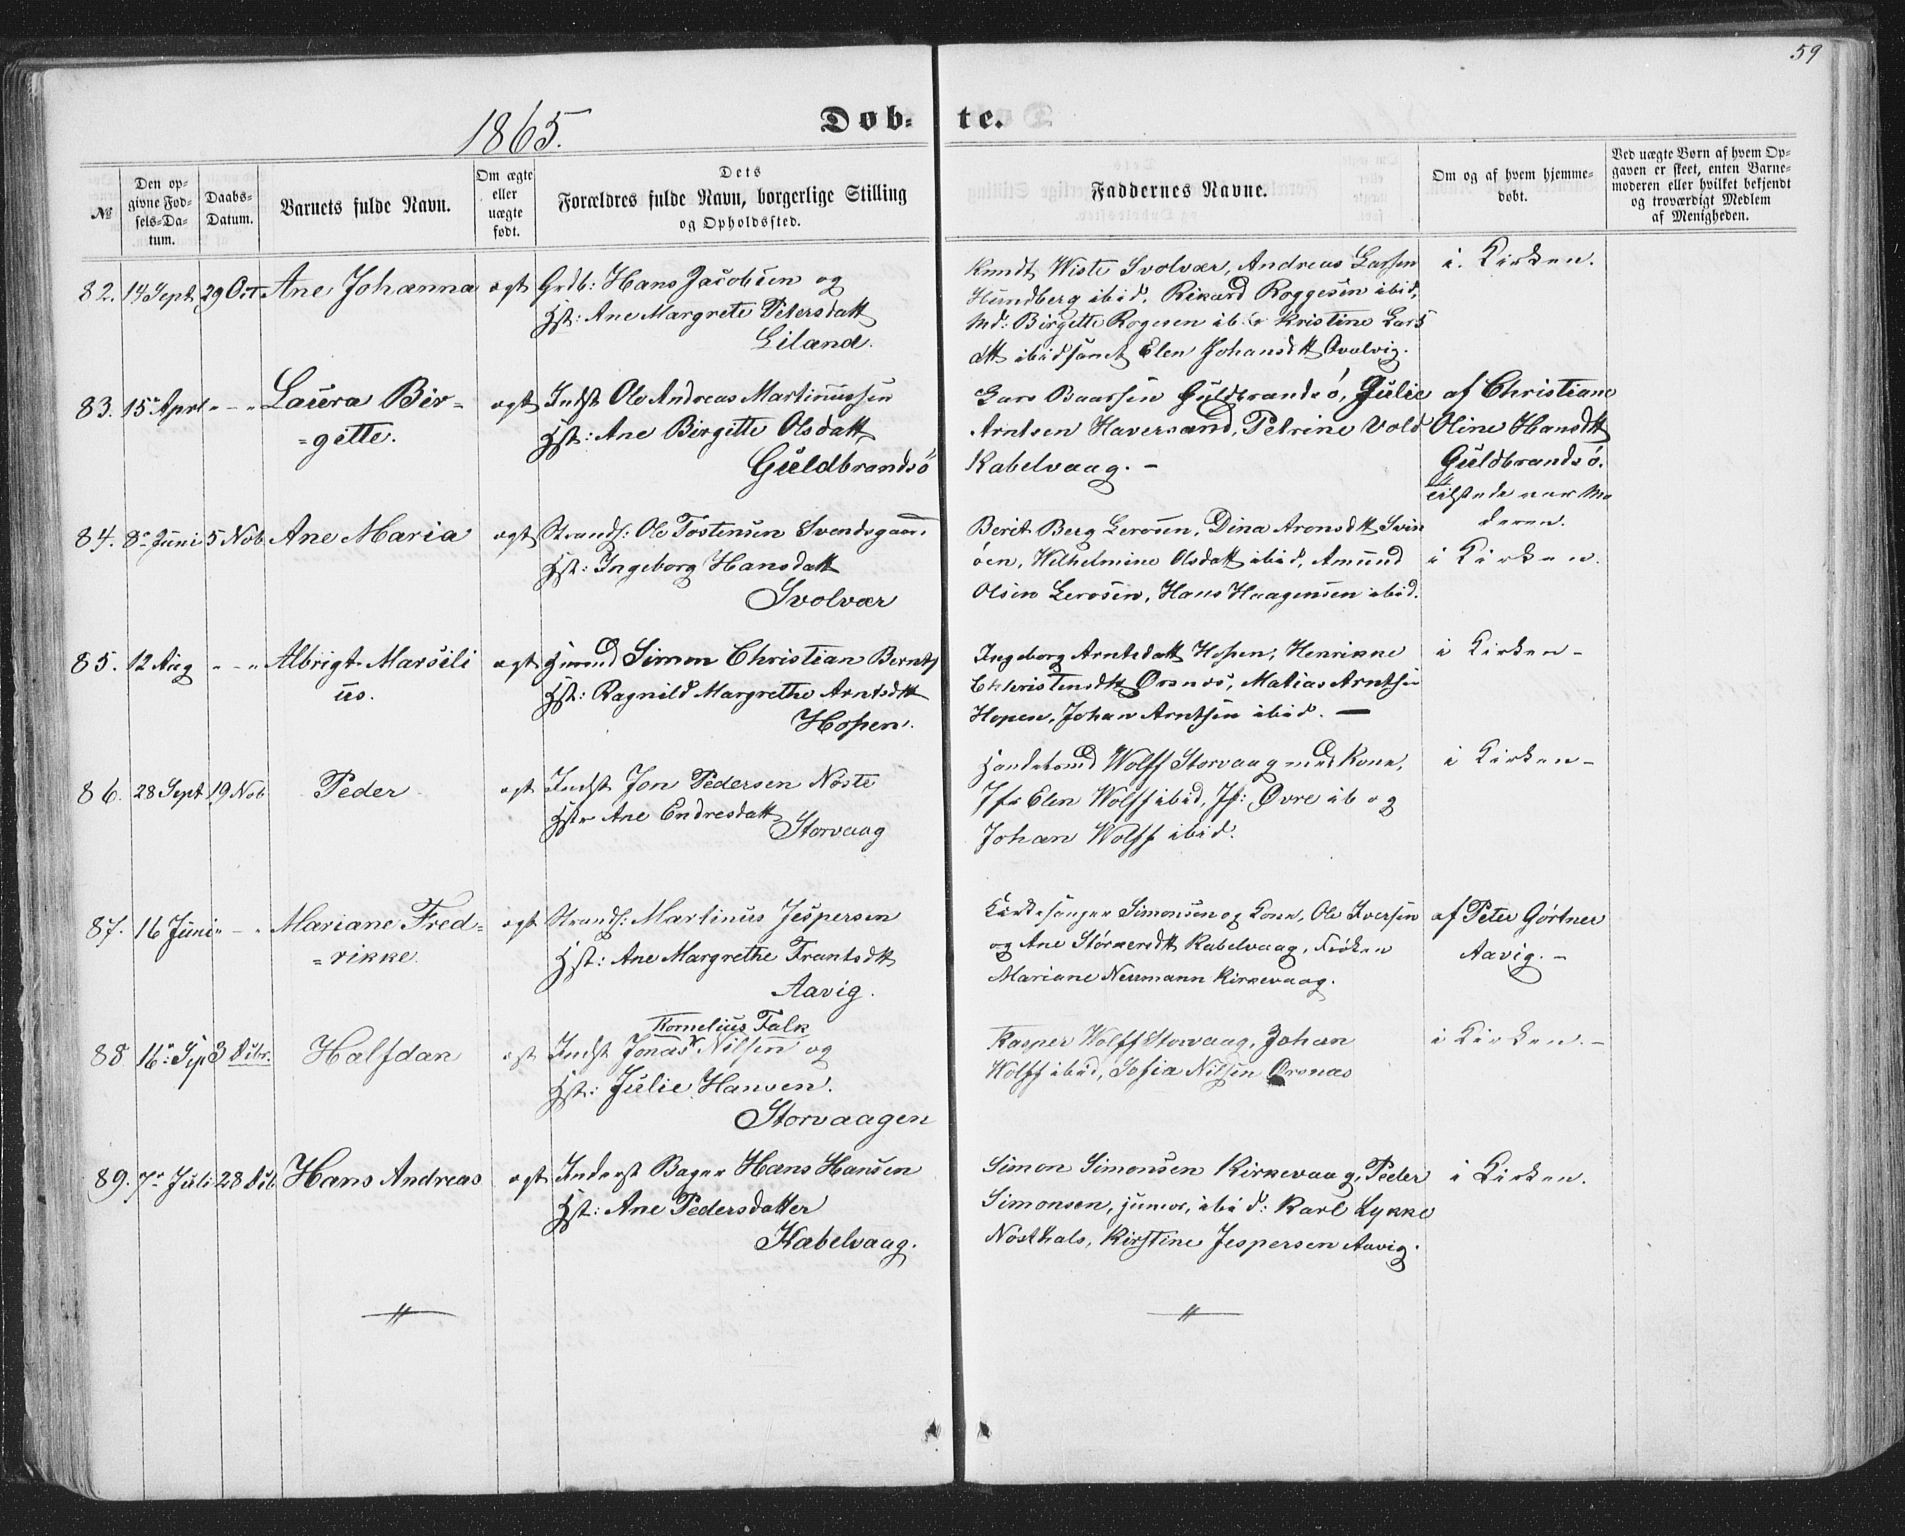 59
1865.
Døb- te.
№
Den op-
givne Fød-
sels-Da-
tum.
Daabs-
Datum.
Barnets fulde Navn.
Om ægte
eller
uægte
født.
Dets
Forældres fulde Navn, borgerlige Stilling
og Opholdssted.
Faddernes Navne.
Om og af hvem hjemme-
døbt.
Ved uægte Børn af hvem Op-
gaven er skeet, enten Barne-
moderen eller hvilket bekjendt
og troværdigt Medlem
af Menigheden.
82. 14 Sept 29 Oct Ane Johanna ægt Grdb: Hans Jacobsen og
Hst: Ane Margrete Petersdatt
Liland.
Knudt Wiste Svolvær, Andreas Larsen
Hundberg ibid, Rikard Roggesen ibid,
Md: Birgitte Rogesen ib. & Kristine Lars
dtt ibid samt Elen Johansdtt Ovalvig.
i. Kirken.
83. 15 Aprl " - " Laura Bir-
=gette.
ægt Indst Ole Andreas Martinussen
Hst: Ane Birgitte Olsdatt
Guldbrandsö
Lars Baarsen Guldbrandsö, Julie
Arntsen Haversand, Petrine Vold
Kabelvaag. -
af Christiane
Oline Hansdtt
Guldbrandsö.
tilstede var Mo
deren.
84. 8 Juni 5 Nob Ane Maria ægt Strands: Ole Tostensen Svendsgaar
Hst: Ingeborg Hansdatt
Svolvær
Berit Berg Lerosen, Dina Aronsdtt Svin
öen, Wilhelmine Olsdatt ibid, Amund
Olsen Lerosen, Hans Haagensen ibid.
i Kirken.
85. 12 Aug " - " Albrigt Marsili
us.
ægt Hmnd Simon Christian Bernts
Hst: Ragnild Margrethe Arntsdtt
Hopen.
Ingeborg Arntsdatt Hopen, Henrikke
Christensdtt Örsnes, Matias Arntsen
Hopen, Johan Arntsen ibid. —
i Kirken -
86. 28 Sept 19 Nob Peder ægt Indst Jon Pedersen Nöste
Hst Ane Endresdatt
Storvaag
Handelsmd Wolff Storvaag med Kone,
Jfr Elen Wolff ibid, Jf: Övre ib og
Johan Wolff ibid.
i Kirken -
87. 16 Juni " - " Mariane Fred-
=rikke.
ægt Strands: Martinus Jespersen
Hst: Ane Margrethe Frantsdtt
Aavig.
Kirkesanger Simonsen og Kone, Ole Iversen
og Ane Störkersdtt Kabelvaag, Fröken
Mariane Nermann Kirkevaag.
af Peter Görtner
Aavig. -
Kornelius Falk
88 16 Sep 3 Dcbr. Halfdan ægt Indst Jonas Nilsen og
Hst: Julie Hansen.
Storvaagen
Kasper Wolff Storvaag, Johan
Wolff ibid, Sofia Nilsen Örsnæs
i Kirken. -
89. 7 Juli 28 Dcb Hans Andreas ægt Inderst Bager Hans Hansen
Hst: Ane Pedersdatter
Kabelvaag.
Simon Simonsen Kirkevaag, Peder
Simonsen, junior, ibid: Karl Lykke
Nösthals, Kirstine Jespersen Aavig.
i Kirken.